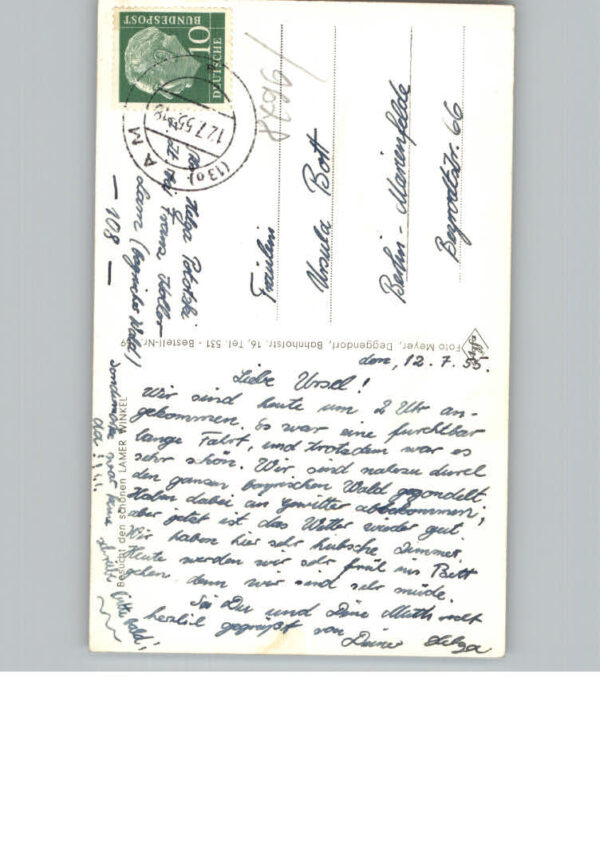 den, 12. 7. 55.
Liebe Ursel!
Wir sind heute um 2 Uhr an-
gekommen. Es war eine furchtbar
lange Fahrt, und trotzdem war es
sehr schön. Wir sind nahezu durch
den ganzen bayrischen Wald gegondelt,
Haben dabei an Gewitter abbekommen,
aber jetzt ist das Wetter wieder gut.
Wir haben hier sehr hübsche Zimmer.
Heute werden wir sehr früh ins Bett
gehen, denn wir sind sehr müde.
Sei Du und Deine Mutti recht
herzlich gegrüßt von
Deiner Helga
war keine
bitte bald!
Besucht den schönen LAMER WINKEL
Foto Meyer, Deggendorf, Bahnhofstr. 16, Tel. 531 - Bestell-Nr.
Helga
Franz
Lam (bayrischer Wald)
- 108 -
Fräulein
Ursula Bott
Berlin-Marienfelde
66
DEUTSCHE
BUNDESPOST
10
(13a)
12.7.55-18
LAM